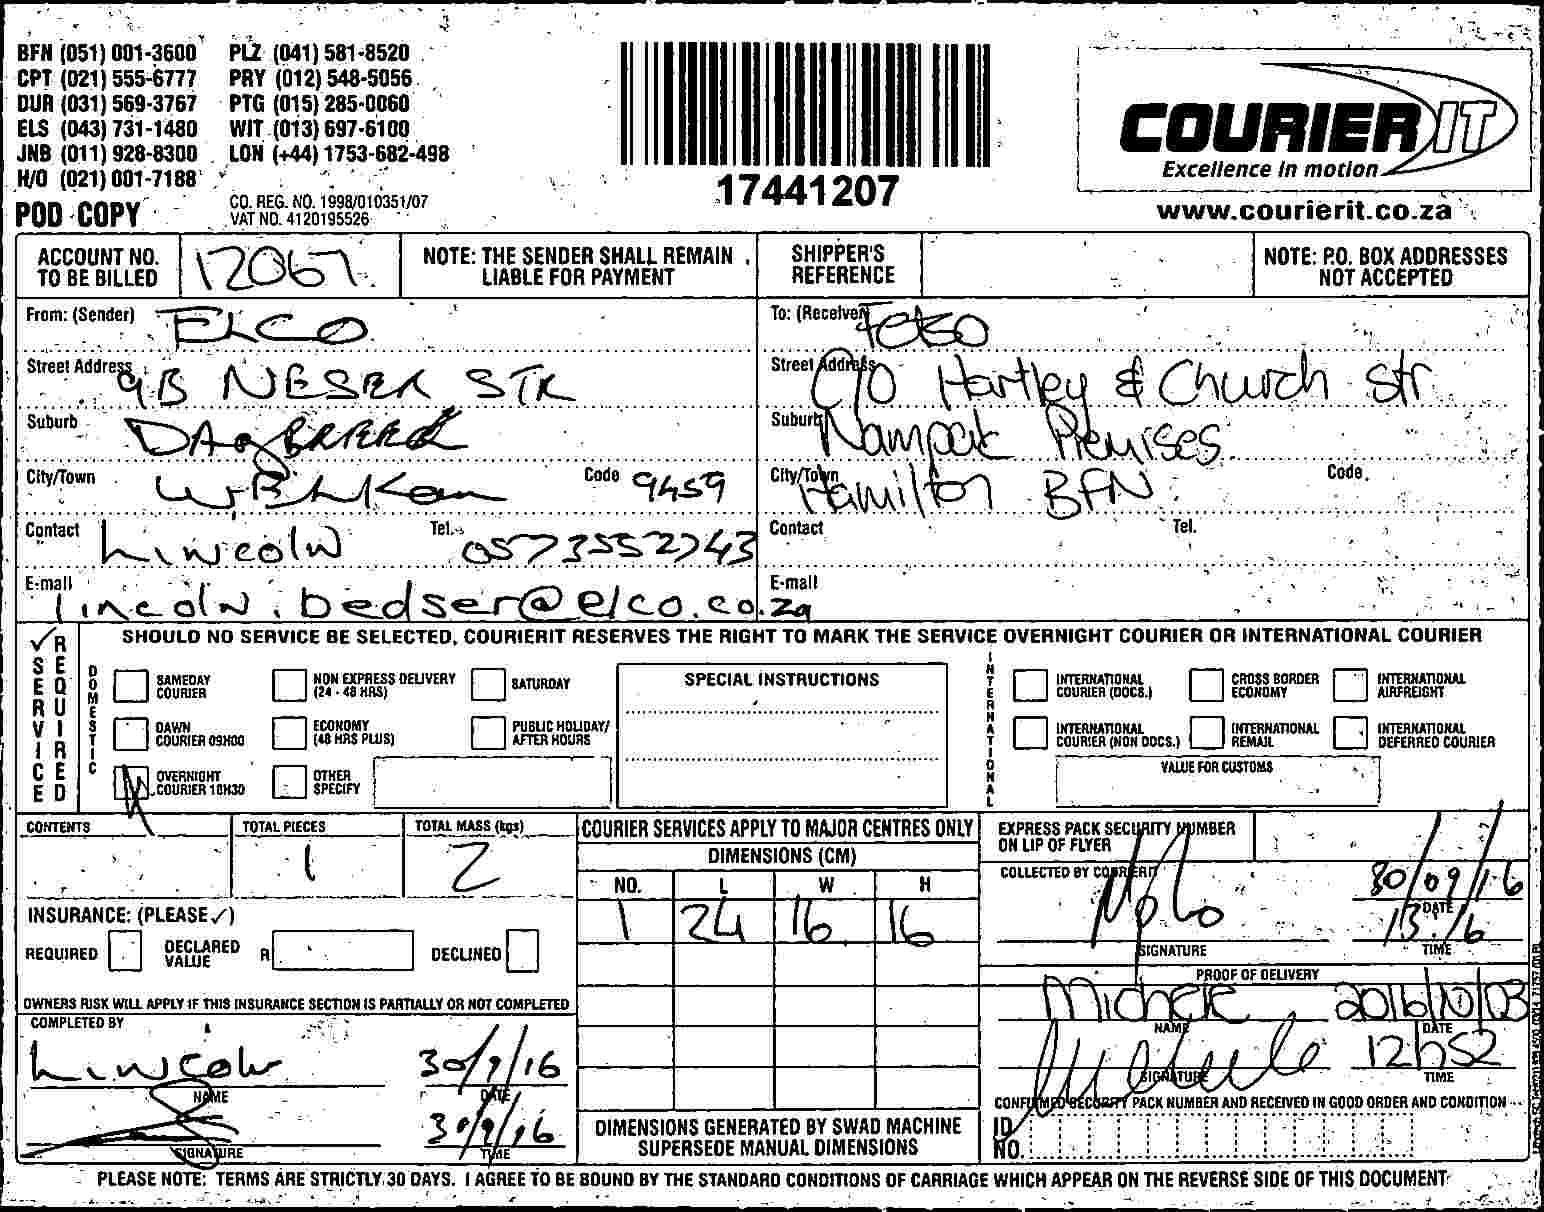 BFN (051) 001-3600 PLZ (041) 581-8520
CPT (021) 555-6777 PRY (012) 548-5056
DUR (031) 569-3767 PTG (015) 285-0060
ELS (043) 731-1480 WIT (013) 697-6100
JNB (011) 928-8300 LON (+44) 1753-682-498
H/O (021) 001-7188
POD COPY
CO. REG. NO. 1998/010351/07
VAT NO. 4120195526
17441207
COURIER IT
Excellence in motion
www.courierit.co.za
ACCOUNT NO. TO BE BILLED 12067
NOTE: THE SENDER SHALL REMAIN LIABLE FOR PAYMENT
SHIPPER'S REFERENCE
NOTE: P.O. BOX ADDRESSES NOT ACCEPTED
From: (Sender) ELCO
Street Address 9B NESER STR
Suburb DAGBREEK
City/Town WELKOM Code 9459
Contact Lincoln Tel. 0573552743
E-mail lincoln.bedser@elco.co.za
To: (Receiver)
Street Address C/O Hartley & Church str
Suburb Nampak Premises
City/Town Hamilton BFN Code
Contact Tel.
E-mail
SERVICE REQUIRED
SHOULD NO SERVICE BE SELECTED, COURIERIT RESERVES THE RIGHT TO MARK THE SERVICE OVERNIGHT COURIER OR INTERNATIONAL COURIER
DOMESTIC
SAMEDAY COURIER
NON EXPRESS DELIVERY (24 - 48 HRS)
SATURDAY
DAWN COURIER 09H00
ECONOMY (48 HRS PLUS)
PUBLIC HOLIDAY/ AFTER HOURS
OVERNIGHT COURIER 10H30
OTHER SPECIFY
SPECIAL INSTRUCTIONS
INTERNATIONAL
INTERNATIONAL COURIER (DOCS.)
CROSS BORDER ECONOMY
INTERNATIONAL AIRFREIGHT
INTERNATIONAL COURIER (NON DOCS.)
INTERNATIONAL REMAIL
INTERNATIONAL DEFERRED COURIER
VALUE FOR CUSTOMS
CONTENTS
TOTAL PIECES 1
TOTAL MASS (kgs) 2
INSURANCE: (PLEASE ✓)
REQUIRED DECLARED VALUE R DECLINED
OWNERS RISK WILL APPLY IF THIS INSURANCE SECTION IS PARTIALLY OR NOT COMPLETED
COMPLETED BY
Lincoln 30/9/16
NAME DATE
30/9/16
SIGNATURE TIME
COURIER SERVICES APPLY TO MAJOR CENTRES ONLY
DIMENSIONS (CM)
NO. L W H
1 24 16 16
DIMENSIONS GENERATED BY SWAD MACHINE SUPERSEDE MANUAL DIMENSIONS
EXPRESS PACK SECURITY NUMBER ON LIP OF FLYER
COLLECTED BY COURIERIT
30/09/16
DATE
13:16
SIGNATURE TIME
PROOF OF DELIVERY
Michele 2016/10/03
NAME DATE
12h52
SIGNATURE TIME
CONFIRMED SECURITY PACK NUMBER AND RECEIVED IN GOOD ORDER AND CONDITION
ID NO.
PLEASE NOTE: TERMS ARE STRICTLY 30 DAYS. I AGREE TO BE BOUND BY THE STANDARD CONDITIONS OF CARRIAGE WHICH APPEAR ON THE REVERSE SIDE OF THIS DOCUMENT